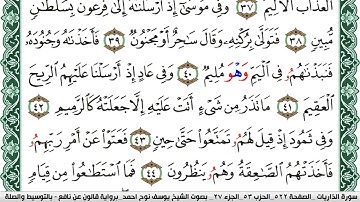 الْعَذَابَ الْأَلِيمَ ٣٧ وَفِي مُوسَىٰ إِذْ أَرْسَلْنَاهُ إِلَىٰ فِرْعَوْنَ بِسُلْطَانٍ
مُّبِينٍ ٣٨ فَتَوَلَّىٰ بِرُكْنِهِ وَقَالَ سَاحِرٌ أَوْ مَجْنُونٌ ٣٩ فَأَخَذْنَاهُ وَجُنُودَهُ
فَنَبَذْنَاهُمُ فِي الْيَمِّ وَهْوَ مُلِيمٌ ٤٠ وَفِي عَادٍ إِذْ أَرْسَلْنَا عَلَيْهِمُ الرِّيحَ
الْعَقِيمَ ٤١ مَا تَذَرُ مِن شَيْءٍ أَتَتْ عَلَيْهِ إِلَّا جَعَلَتْهُ كَالرَّمِيمِ ٤٢
وَفِي ثَمُودَ إِذْ قِيلَ لَهُمُ تَمَتَّعُوا حَتَّىٰ حِينٍ ٤٣ فَعَتَوْا عَنْ أَمْرِ رَبِّهِمُ
فَأَخَذَتْهُمُ الصَّاعِقَةُ وَهُمُ يَنظُرُونَ ٤٤ فَمَا اسْتَطَاعُوا مِن قِيَامٍ
سورة الذاريات_الصفحة ٥٢٢_الحزب ٥٣_الجزء ٢٧ بصوت الشيخ يوسف نوح احمد_برواية قالون عن نافع - بالتوسيط والصلة